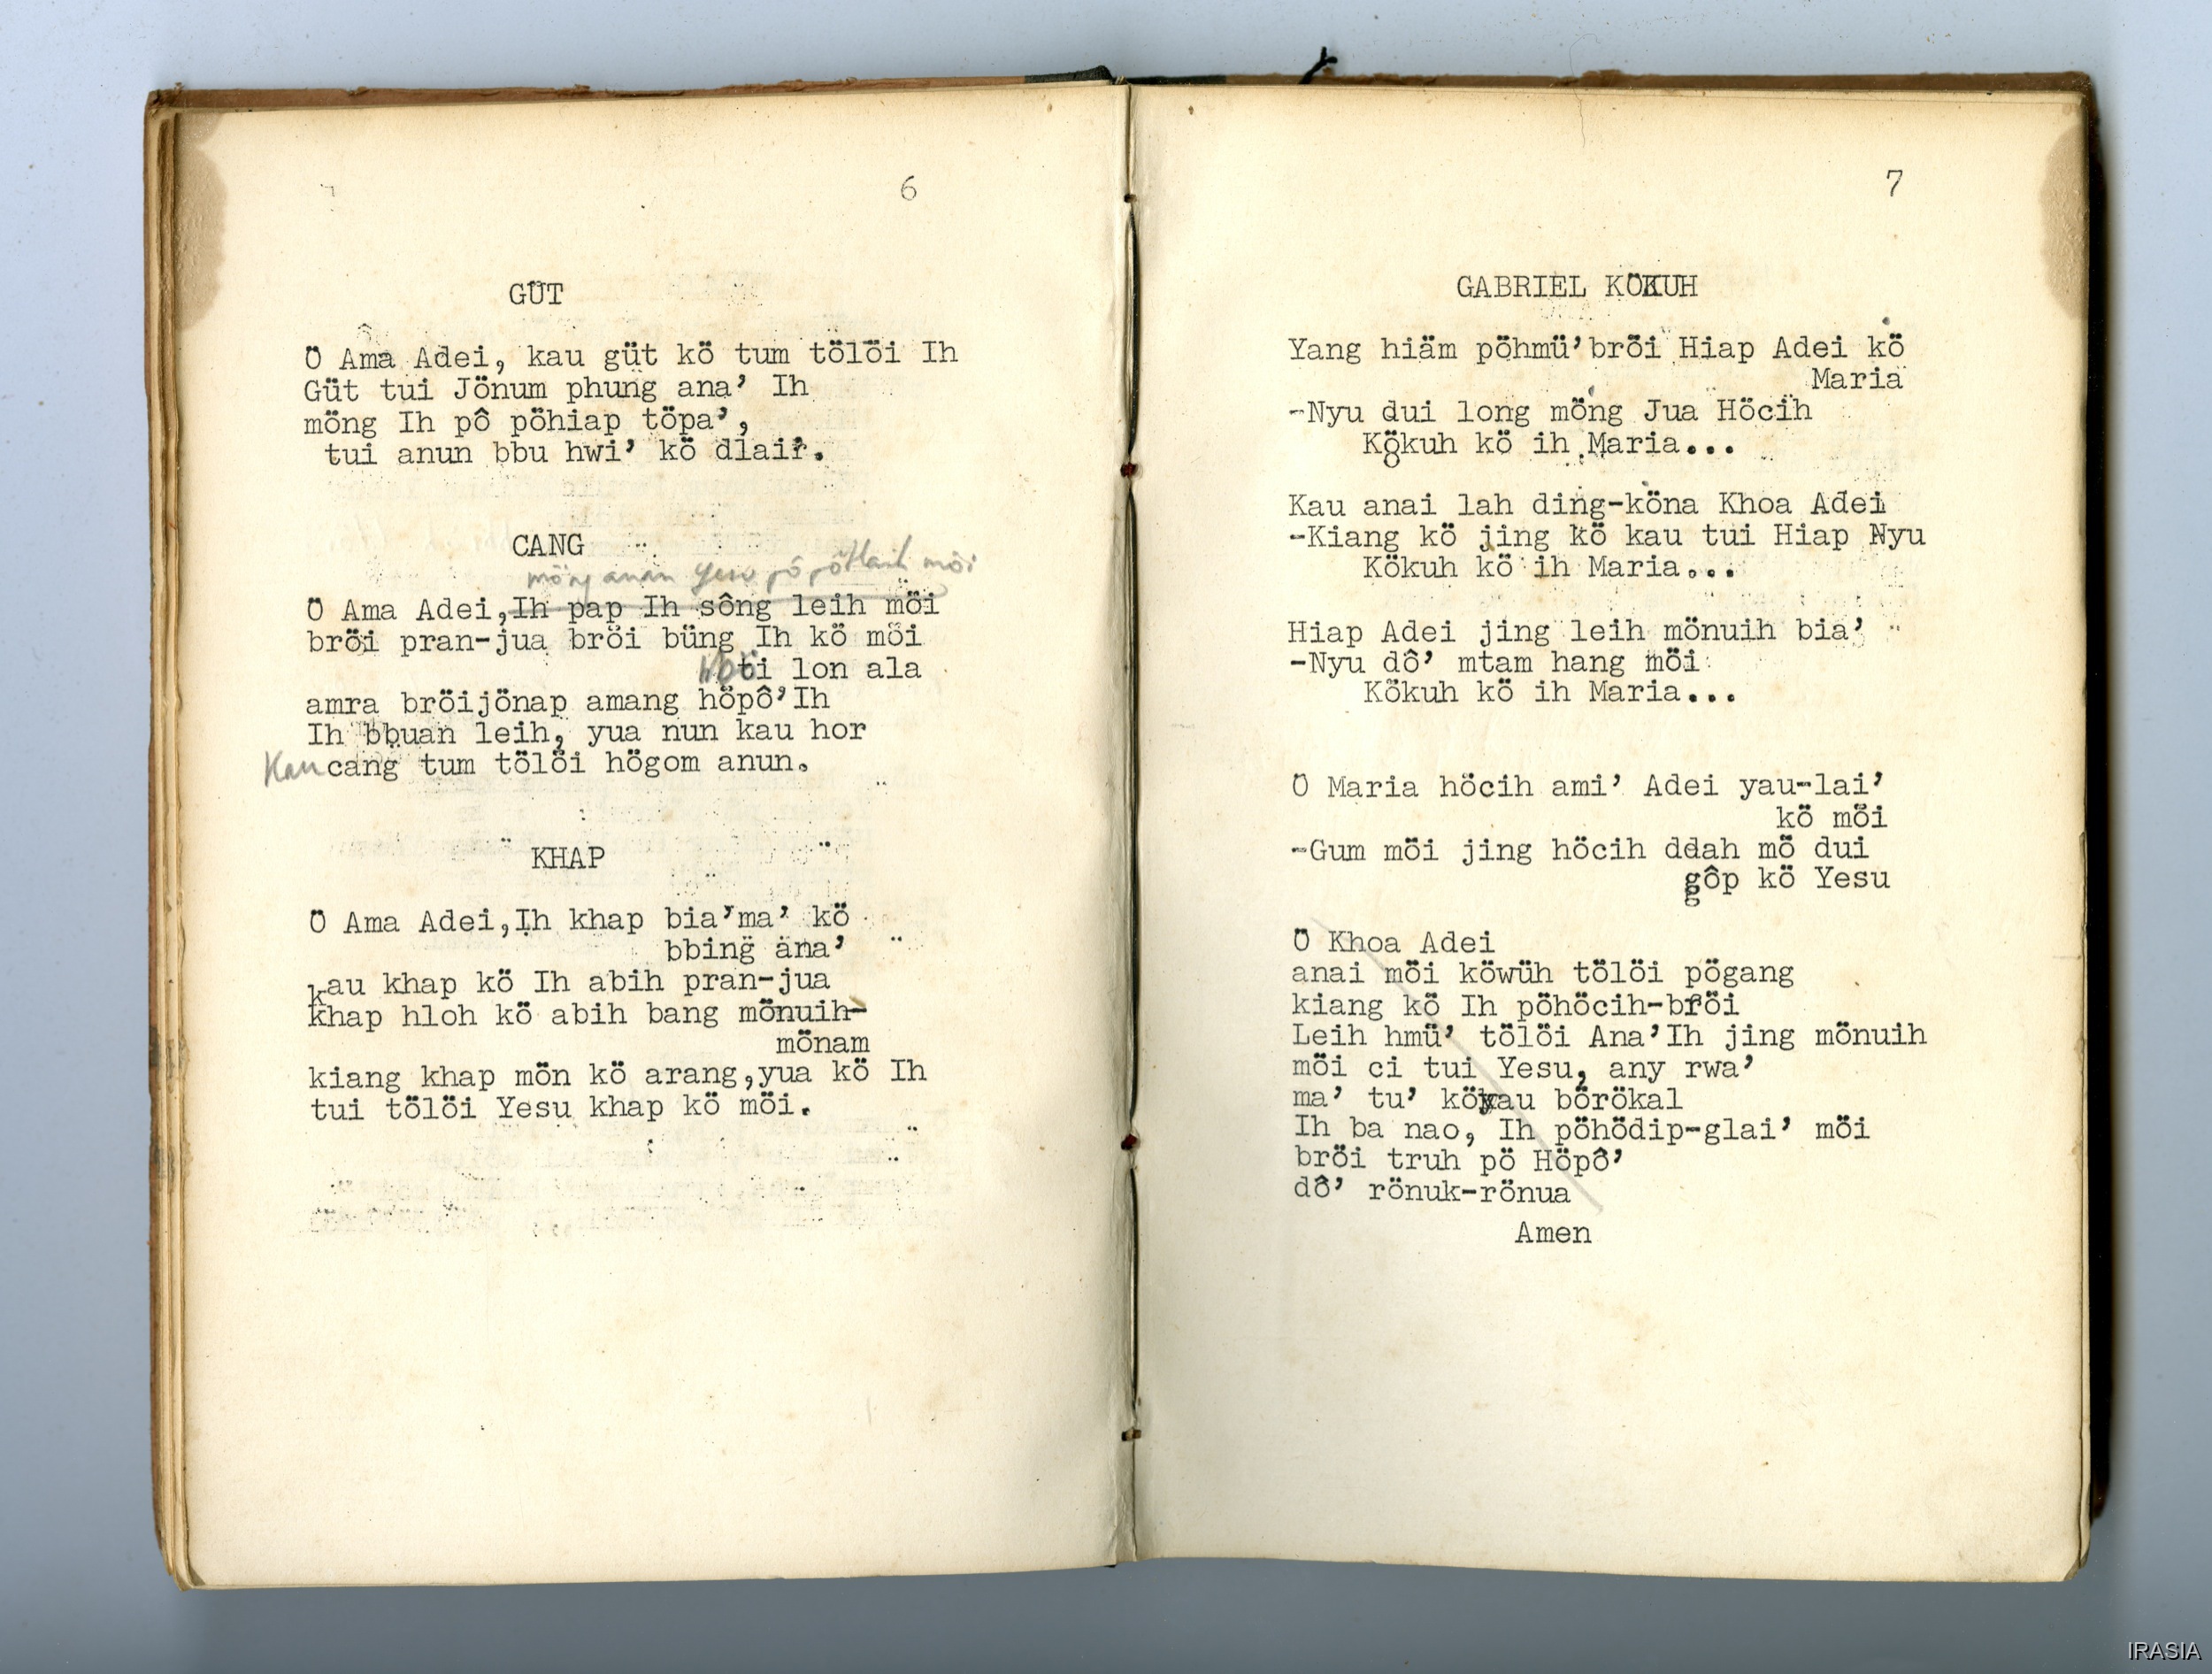 6
GÜT
Ö Ama Adei, kau güt kö tum tölöi Ih
Güt tui Jönum phung ana' Ih
möng Ih pô pöhiap töpa',
tui anun bbu hwi' kö dlair.
CANG
möng anan Yesu pô pötlaih möi
Ö Ama Adei, Ih pap Ih sông leih möi
bröi pran-jua bröi büng Ih kö möi
ti lon ala
amra bröijönap amang höpô'Ih
Ih bbuan leih, yua nun kau hor
Kau cang tum tölöi högom anun.
KHAP
Ö Ama Adei,Ih khap bia'ma' kö
bbing ana'
kau khap kö Ih abih pran-jua
khap hloh kö abih bang mönuih-
mönam
kiang khap mön kö arang,yua kö Ih
tui tölöi Yesu khap kö möi.
7
GABRIEL KÖKUH
Yang hiäm pöhmü'bröi Hiap Adei kö
Maria
-Nyu dui long möng Jua Höcih
Kökuh kö ih Maria...
Kau anai lah ding-köna Khoa Adei
-Kiang kö jing kö kau tui Hiap Nyu
Kökuh kö ih Maria...
Hiap Adei jing leih mönuih bia'
-Nyu dô' mtam hang möi
Kökuh kö ih Maria...
Ö Maria höcih ami' Adei yau-lai'
kö möi
-Gum möi jing höcih ddah mö dui
gôp kö Yesu
Ö Khoa Adei
anai möi köwüh tölöi pögang
kiang kö Ih pöhöcih-bröi
Leih hmü' tölöi Ana'Ih jing mönuih
möi ci tui Yesu, any rwa'
ma' tu' kö kau börökal
Ih ba nao, Ih pöhödip-glai' möi
bröi truh pö Höpô'
dô' rönuk-rönua
Amen
IRASIA